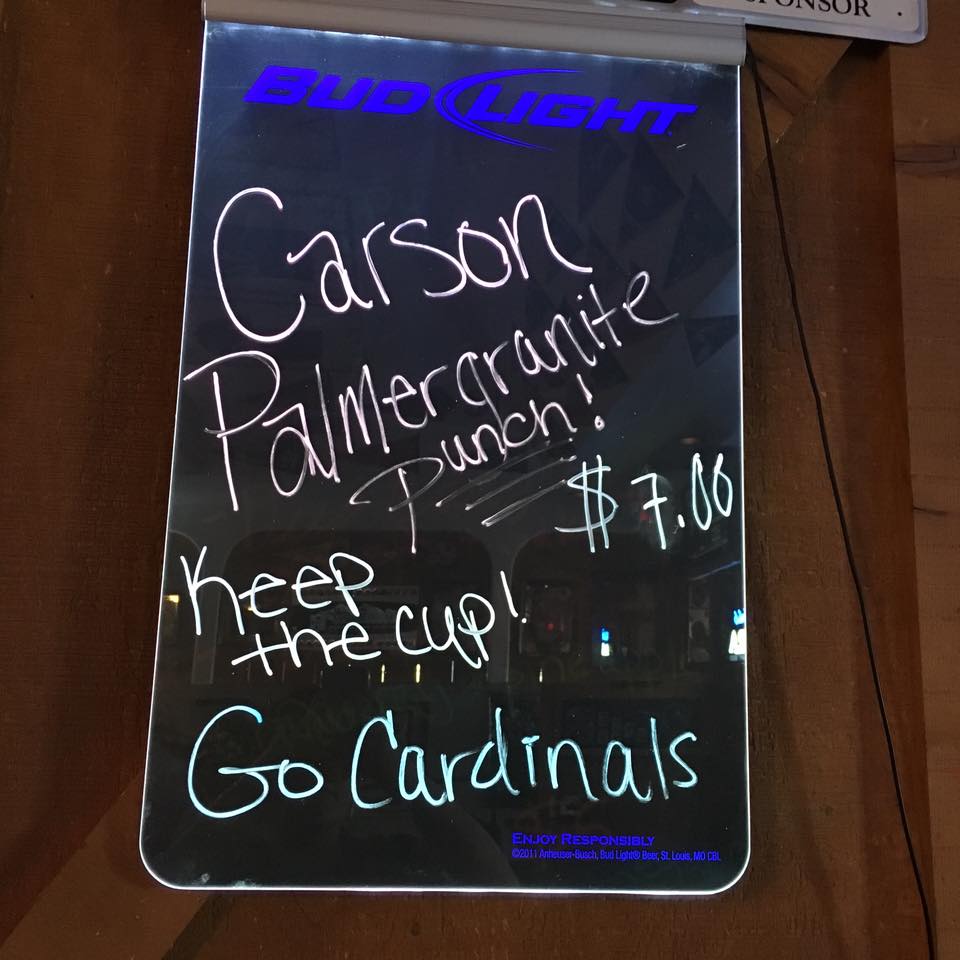 SPONSOR
BUD LIGHT
Carson
Palmergranite
Punch!
$7.00
Keep
the cup!
Go Cardinals
ENJOY RESPONSIBLY
©2011 Anheuser-Busch, Bud Light® Beer, St. Louis, MO CBL